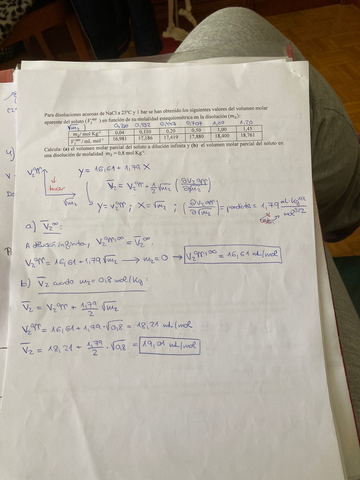 Para disoluciones acuosas de NaCl a 25ºC y 1 bar se han obtenido los siguientes valores del volumen molar
aparente del soluto (V₂ᵃᵖ) en función de su molalidad estequiométrica en la disolución (m₂):
√m₂ 0,20 0,332 0,447 0,708 1,00 1,20
m₂/ mol Kg⁻¹ 0,04 0,110 0,20 0,50 1,00 1,45
/ mL mol⁻¹ 16,981 17,186 17,419 17,880 18,400 18,761
Calcula: (a) el volumen molar parcial del soluto a dilución infinita y (b) el volumen molar parcial del soluto en
una disolución de molalidad m₂ = 0,8 mol Kg⁻¹.
V₂ᵃᵖ
√m₂
Y = 16,61 + 1,79 X
V̄₂ = V₂ᵃᵖ + ½ √m₂ (∂V₂ᵃᵖ/∂√m₂)
Y = V₂ᵃᵖ ; X = √m₂ ; (∂V₂ᵃᵖ/∂√m₂) = pendiente = 1,79 mL·kg¹ᐟ²/mol³ᐟ²
a) V̄₂^∞ :
A dilución infinita, V₂ᵃᵖ,∞ = V̄₂^∞
V₂ᵃᵖ = 16,61 + 1,79 √m₂ → m₂ = 0 → V₂ᵃᵖ,∞ = 16,61 mL/mol
b) V̄₂ cuando m₂ = 0,8 mol/kg.
V̄₂ = V₂ᵃᵖ + 1,79/2 √m₂
V₂ᵃᵖ = 16,61 + 1,79·√0,8 = 18,21 mL/mol
V̄₂ = 18,21 + 1,79/2 · √0,8 = 19,01 mL/mol